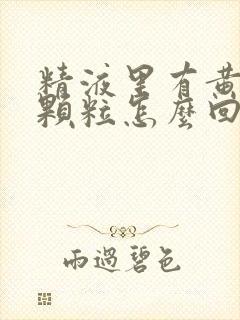 精液里有黄
颗粒怎麼回
雨過碧色